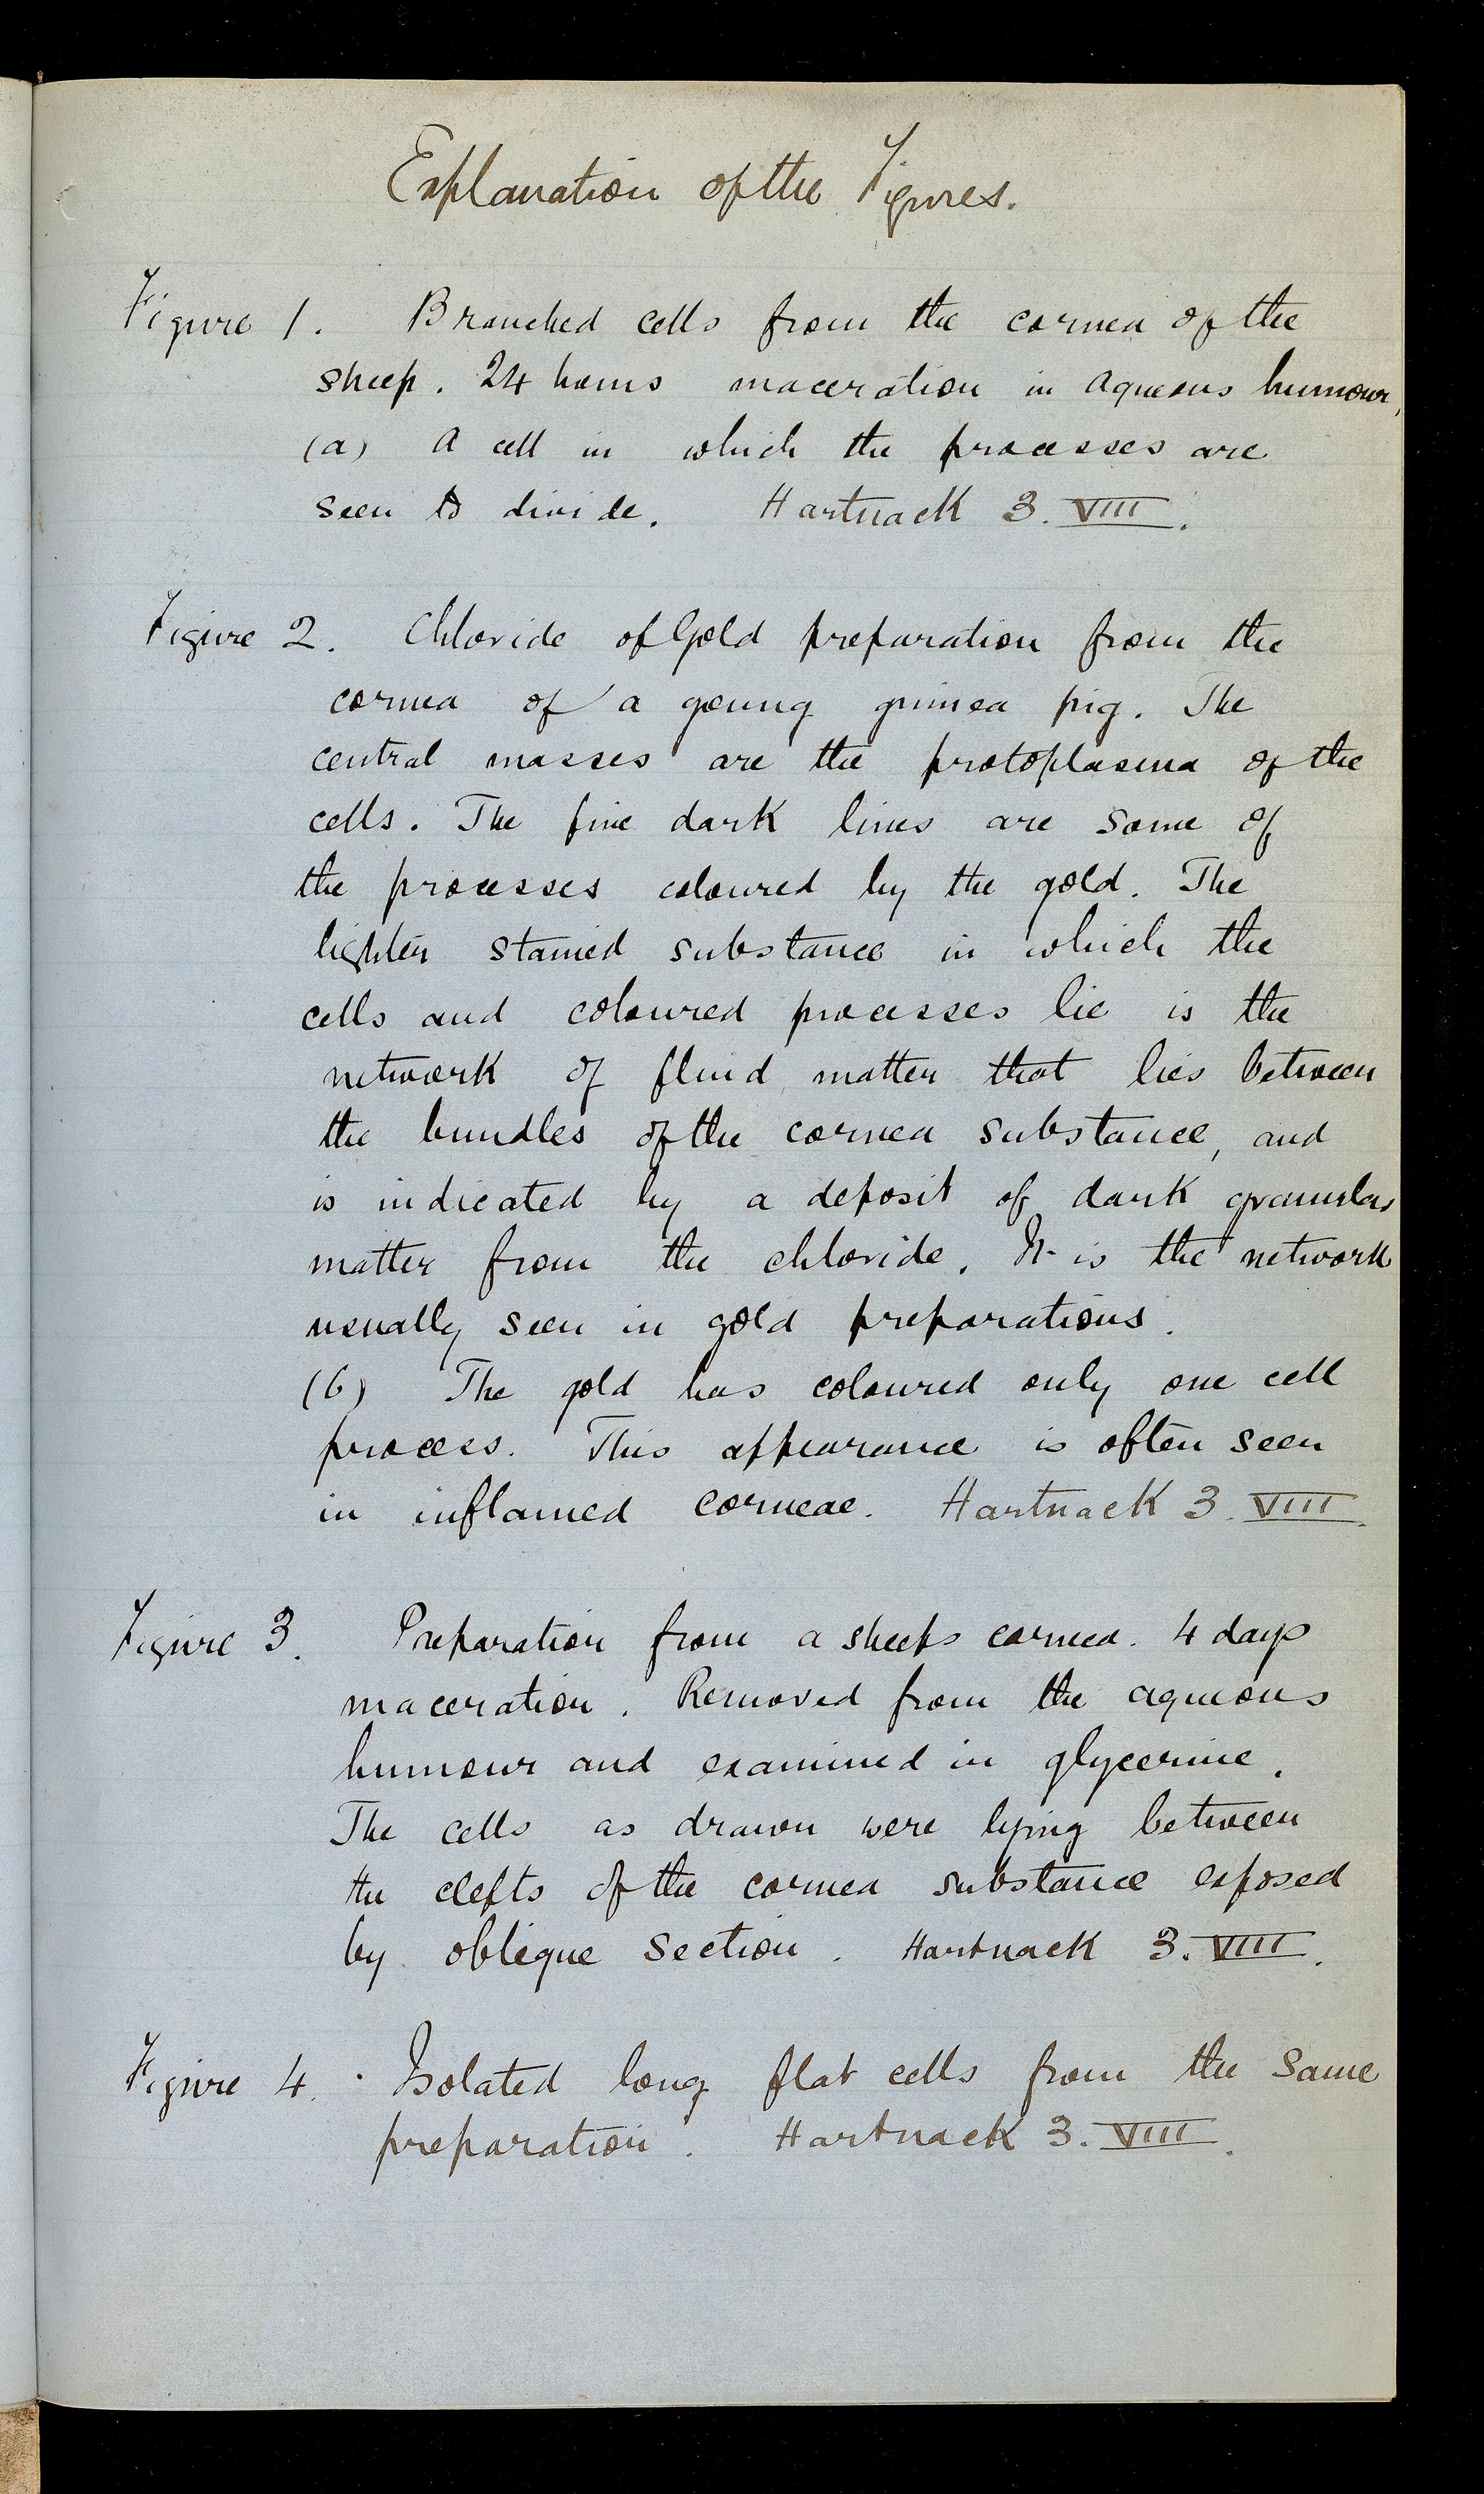 Explanation of the Figures.
Figure 1. Branched cells from the cornea of the
sheep. 24 hours maceration in aqueous humour,
(a) A cell in which the processes are
seen to divide. Hartnack 3. VIII.
Figure 2. Chloride of Gold preparation from the
cornea of a young guinea pig. The
central masses are the protoplasma of the
cells. The fine dark lines are some of
the processes coloured by the gold. The
lighter stained substance in which the
cells and coloured processes lie is the
network of fluid matter that lies between
the bundles of the cornea substance, and
is indicated by a deposit of dark granular
matter from the chloride. It is the network
usually seen in gold preparations.
(b) The gold has coloured only one cell
process. This appearance is often seen
in inflamed corneae. Hartnack 3. VIII.
Figure 3. Preparation from a sheeps cornea. 4 days
maceration. Removed from the aqueous
humour and examined in glycerine.
The cells as drawn were lying between
the clefts of the cornea substance exposed
by oblique section. Hartnack 3. VIII.
Figure 4. Isolated long flat cells from the same
preparation. Hartnack 3. VIII.